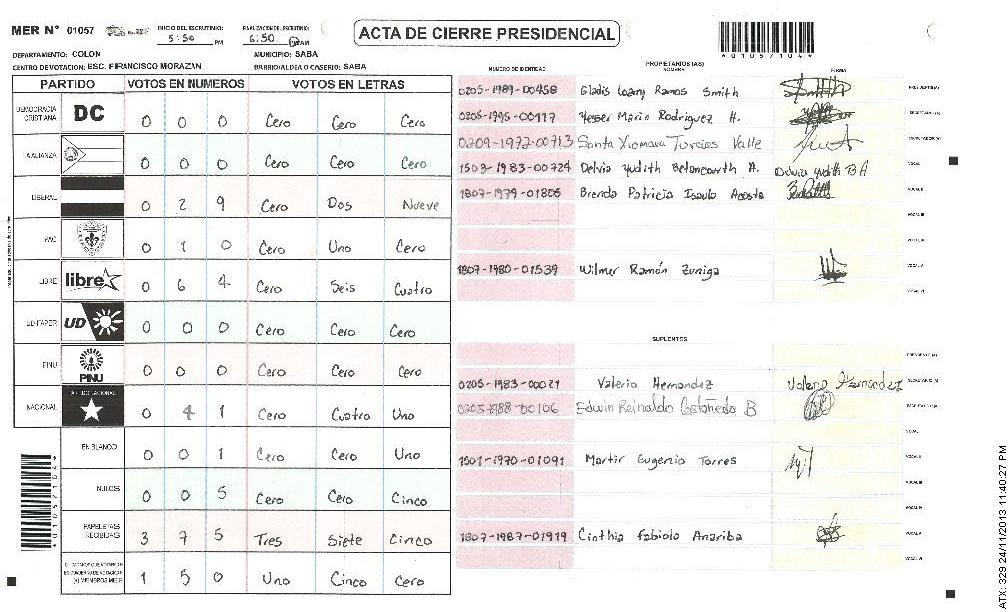 MER N° 01057
INICIO DEL ESCRUTINIO:
5:50 PM
FINALIZACION DEL ESCRUTINIO:
6:50 PM AM
ACTA DE CIERRE PRESIDENCIAL
*01057104*
DEPARTAMENTO: COLON
MUNICIPIO: SABA
CENTRO DE VOTACION: ESC. FIRANCISCO MORAZAN
BARRIO/ALDEA O CASERIO: SABA
PARTIDO VOTOS EN NUMEROS VOTOS EN LETRAS
DEMOCRACIA CRISTIANA DC 0 0 0 Cero Cero Cero
ALIANZA 0 0 0 Cero Cero Cero
LIBERAL 0 2 9 Cero Dos Nueve
PAC 0 1 0 Cero Uno Cero
LIBRE libre 0 6 4 Cero Seis Cuatro
UD-FAPER UD 0 0 0 Cero Cero Cero
PINU PINU 0 0 0 Cero Cero Cero
NACIONAL 0 4 1 Cero Cuatro Uno
EN BLANCO 0 0 1 Cero Cero Uno
NULOS 0 0 5 Cero Cero Cinco
PAPELETAS RECIBIDAS 3 7 5 Tres Siete Cinco
1 5 0 Uno Cinco Cero
*01057104*
NUMERO DE IDENTIDAD PROPIETARIOS (AS) NOMBRE FIRMA
0205-1989-00458 Gladis Loany Ramos Smith PRESIDENTE(A)
0205-1995-00117 Yesser Marin Rodriguez H. SECRETARIO (A)
0209-1972-00713 Santa Xiomara Turcios Valle ESCRUTADOR (A)
1503-1983-00724 Delvia Yudith Betancourth A. Delvia Yudith B A VOCAL I
1807-1979-01805 Brenda Patricia Isaula Acosta VOCAL II
VOCAL III
VOCAL IV
1807-1980-01539 Wilmer Ramón Zuniga VOCAL V
VOCAL VI
SUPLENTES
PRESIDENTE (A)
0205-1983-00021 Valerio Hernandez Valerio Hernandez SECRETARIO (A)
0205-1988-00106 Edwin Reinaldo Castañeda B ESCRUTADOR (A)
VOCAL I
1501-1970-01091 Martir Eugenio Torres VOCAL II
VOCAL III
VOCAL IV
1807-1987-01919 Cinthia Fabiola Anariba VOCAL V
VOCAL VI
ATX: 329 24/11/2013 11:40:27 PM